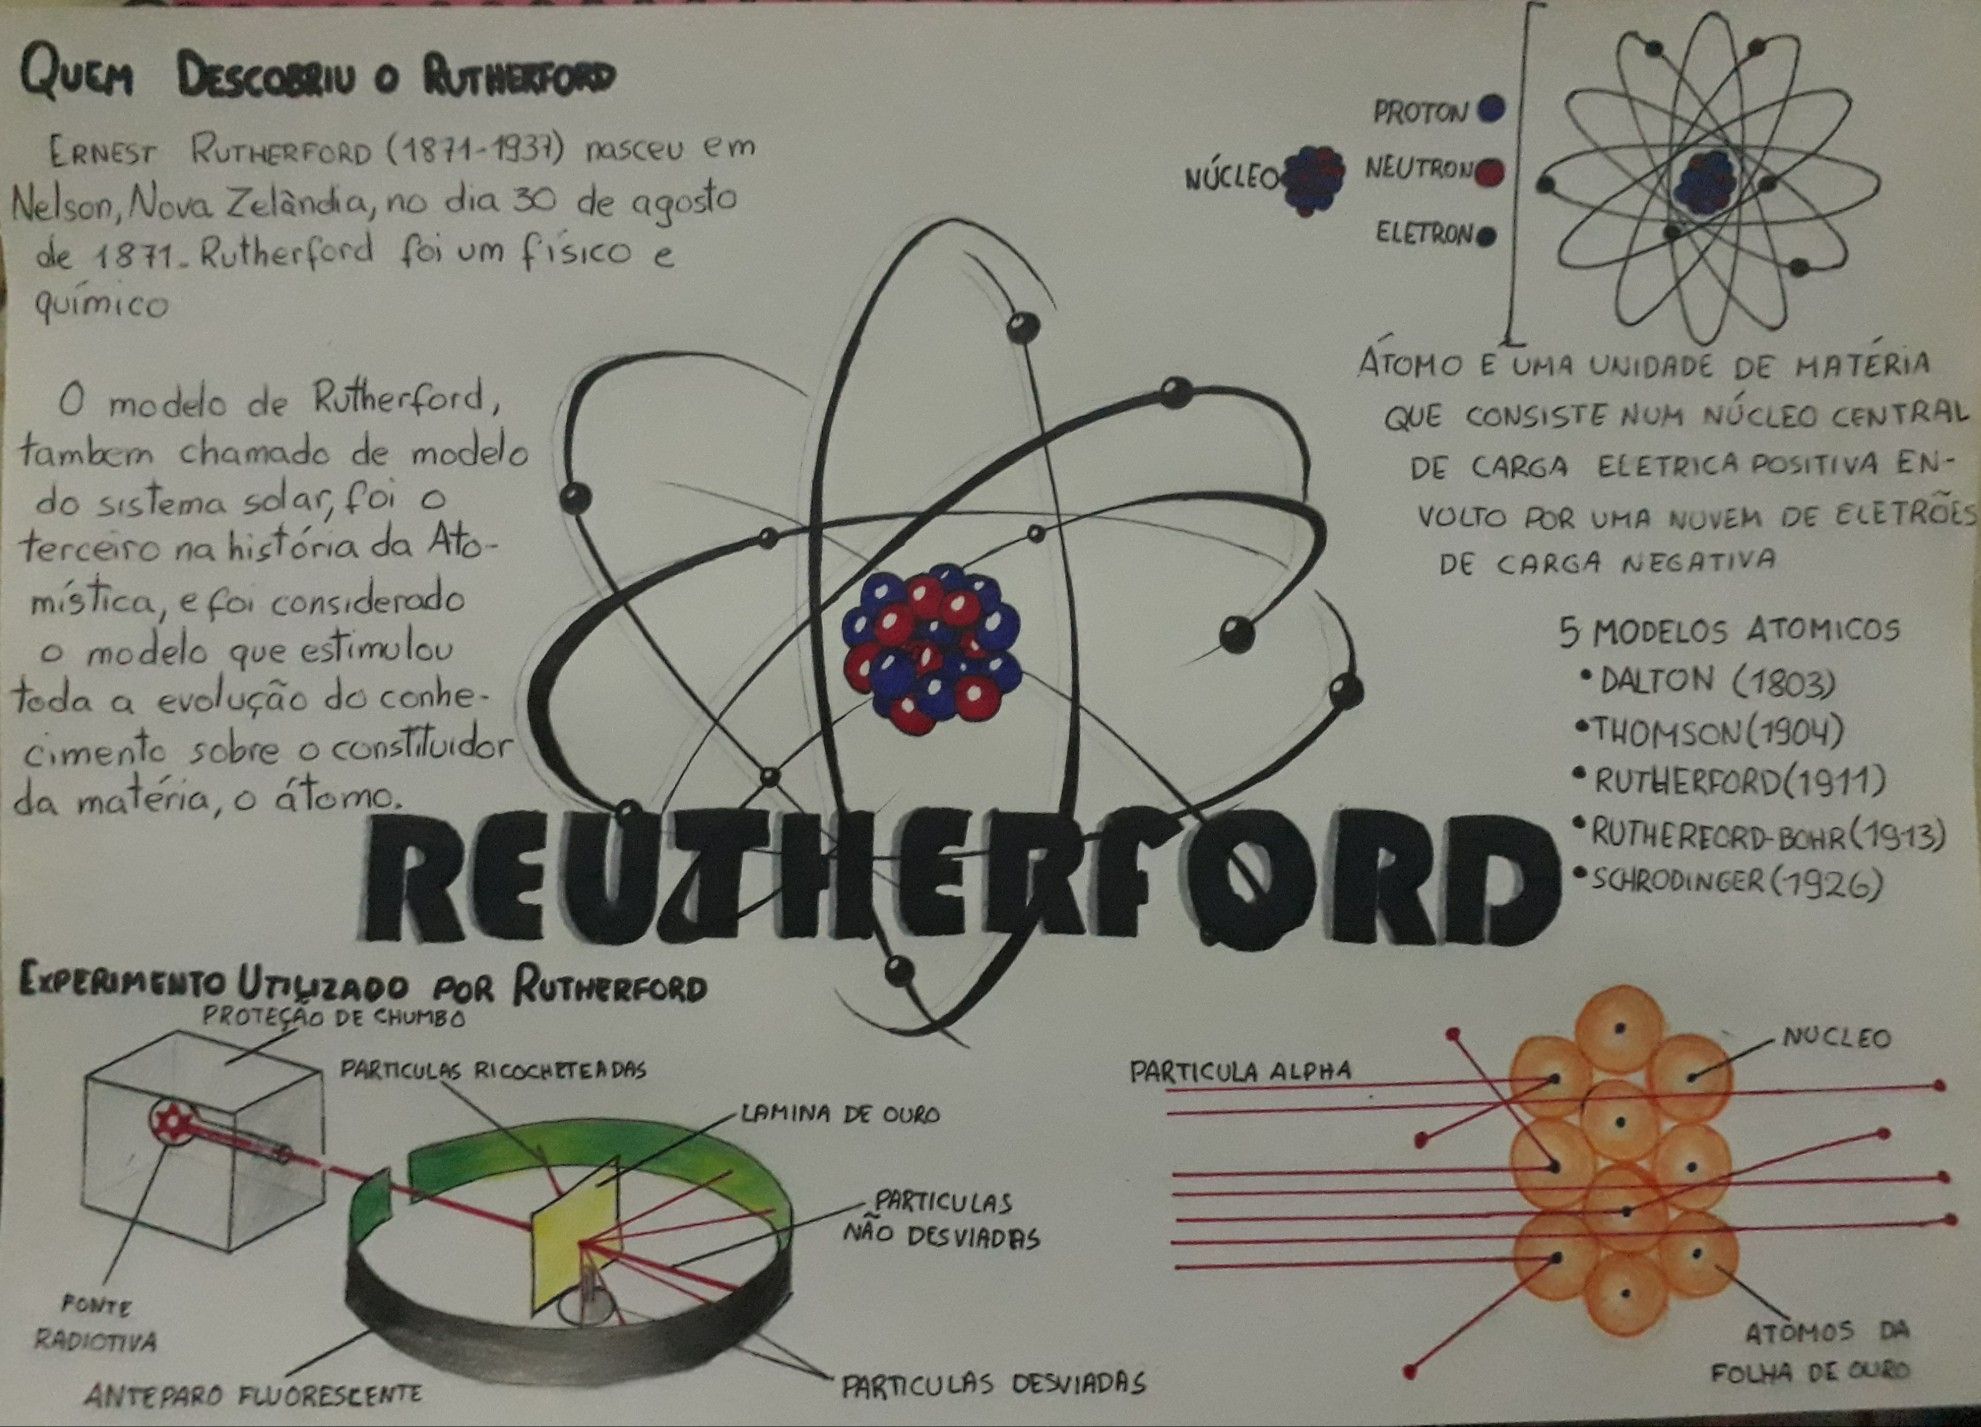 QUEM DESCOBRIU O RUTHERFORD
ERNEST RUTHERFORD (1871-1937) nasceu em
Nelson, Nova Zelàndia, no dia 30 de agosto
de 1871. Rutherford foi um físico e
químico
O modelo de Rutherford,
tambem chamado de modelo
do sistema solar, foi o
terceiro na história da Ato-
mística, e foi considerado
o modelo que estimulou
toda a evolução do conhe-
cimento sobre o constituidor
da matéria, o átomo.
NÚCLEO
PROTON
NEUTRON
ELETRON
ÁTOMO É UMA UNIDADE DE MATÉRIA
QUE CONSISTE NUM NÚCLEO CENTRAL
DE CARGA ELETRICA POSITIVA EN-
VOLTO POR UMA NUVEM DE ELETRÕES
DE CARGA NEGATIVA
5 MODELOS ATOMICOS
• DALTON (1803)
• THOMSON (1904)
• RUTHERFORD (1911)
• RUTHEREORD-BOHR (1913)
• SCHRODINGER (1926)
REUTHERFORD
EXPERIMENTO UTILIZADO POR RUTHERFORD
PROTEÇÃO DE CHUMBO
PARTICULAS RICOCHETEADAS
LAMINA DE OURO
PARTICULAS
NÃO DESVIADAS
FONTE
RADIOTIVA
ANTEPARO FLUORESCENTE
PARTICULAS DESVIADAS
PARTICULA ALPHA
NUCLEO
ATOMOS DA
FOLHA DE OURO